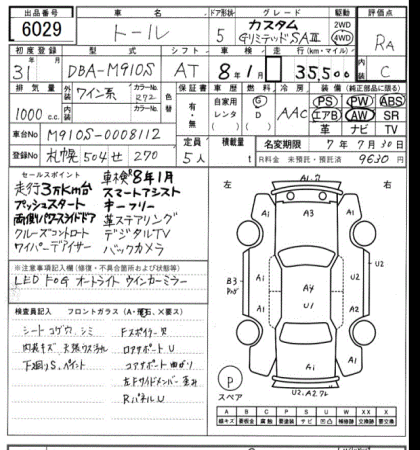 出品番号 車名 ドア形状 グレード 駆動 評価点
6029 トール 5 カスタム
Gリミテッド SAⅢ 2WD 4WD RA
初度登録 型式 シフト 車検 走行(km・マイル) 内装
31 DBA-M910S AT 8年1月 35,500 C
排気量 外装 ワイン系 カラーNo. R72 色替 保証書 車歴 燃料 冷房 装備(純正部品に限る)
1000 c.c. 内装 カラーNo. 有・無 自家用 レンタ G D AAC PS PW ABS
エアB AW SR
革 ナビ TV
車台No M910S-0008112 定員 積載量 名変期限 7年7月30日
登録No 札幌 504 せ 270 5人 t R料金 未預託・預託済 9630円
セールスポイント 車検R8年1月
走行3万km台 スマートアシスト
プッシュスタート キーフリー
両側パワースライドドア 革ステアリング
クルーズコントロート デジタルTV
ワイパーデアイサー バックカメラ
※注意事項記入欄(修復・不具合箇所および状態)
LED FOG オートライト ウインカーミラー
検査員記入 フロントガラス(A・飛石、X要ス)
シート コゲウ、シミ Fスポイラー
内装キズ
下廻りS、ペイント コアサポート曲がり
左Fサイドメンバー歪み
RパネルU
左 右
A1.U
A1 A3 A1
U2
B3 A1 A4 A1 U2
U1
A1 A1 A1
U2.A2
P
スペア
A B C P S U W X XX
線キズ 要板金 腐食 要塗装 サビ 凹凸 補修跡 交換跡 要交換